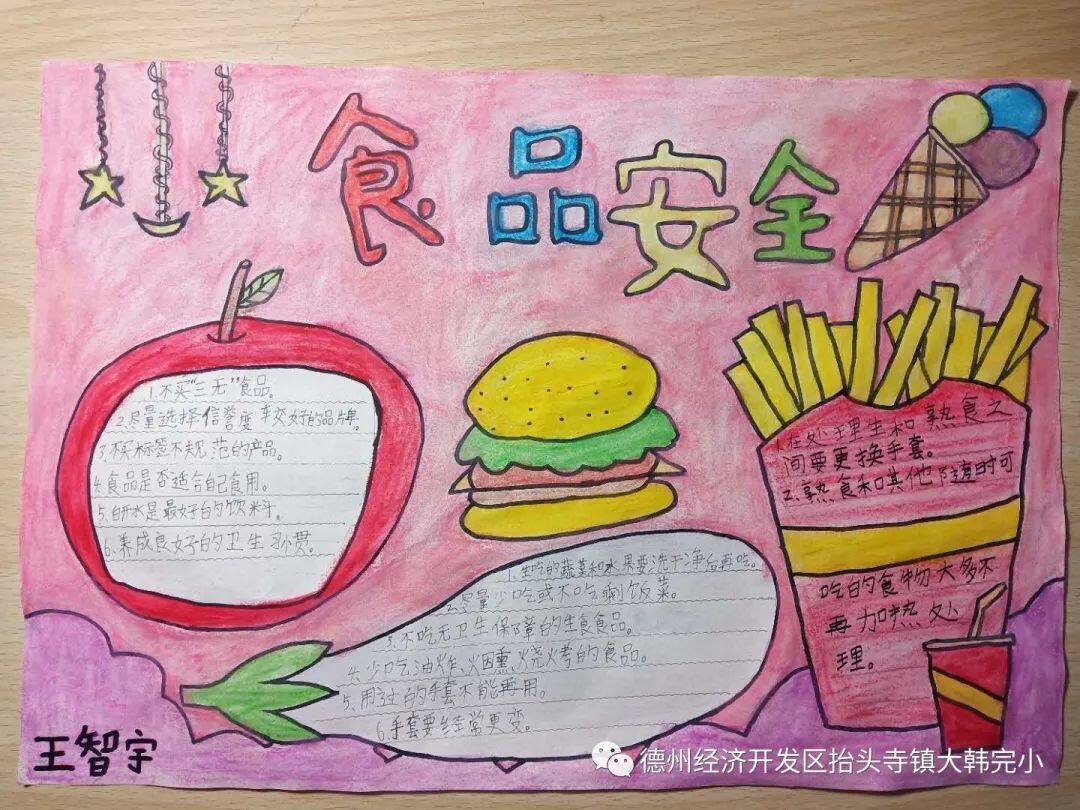 食品安全
1.不买“三无”食品。
2.尽量选择信誉度较好的品牌。
3.不买标签不规范的产品。
4.食品是否适合自己食用。
5.白开水是最好的饮料。
6.养成良好的卫生习惯。
1.生吃的蔬菜和水果要洗干净后再吃。
2.尽量少吃或不吃剩饭菜。
3.不吃无卫生保障的生食食品。
4.少吃油炸、烟熏、烧烤的食品。
5.用过的手套不能再用。
6.手套要经常更变。
1.在处理生和熟食之
间要更换手套。
2.熟食和其他随时可
吃的食物大多不
再加热处
理。
王智宇
德州经济开发区抬头寺镇大韩完小